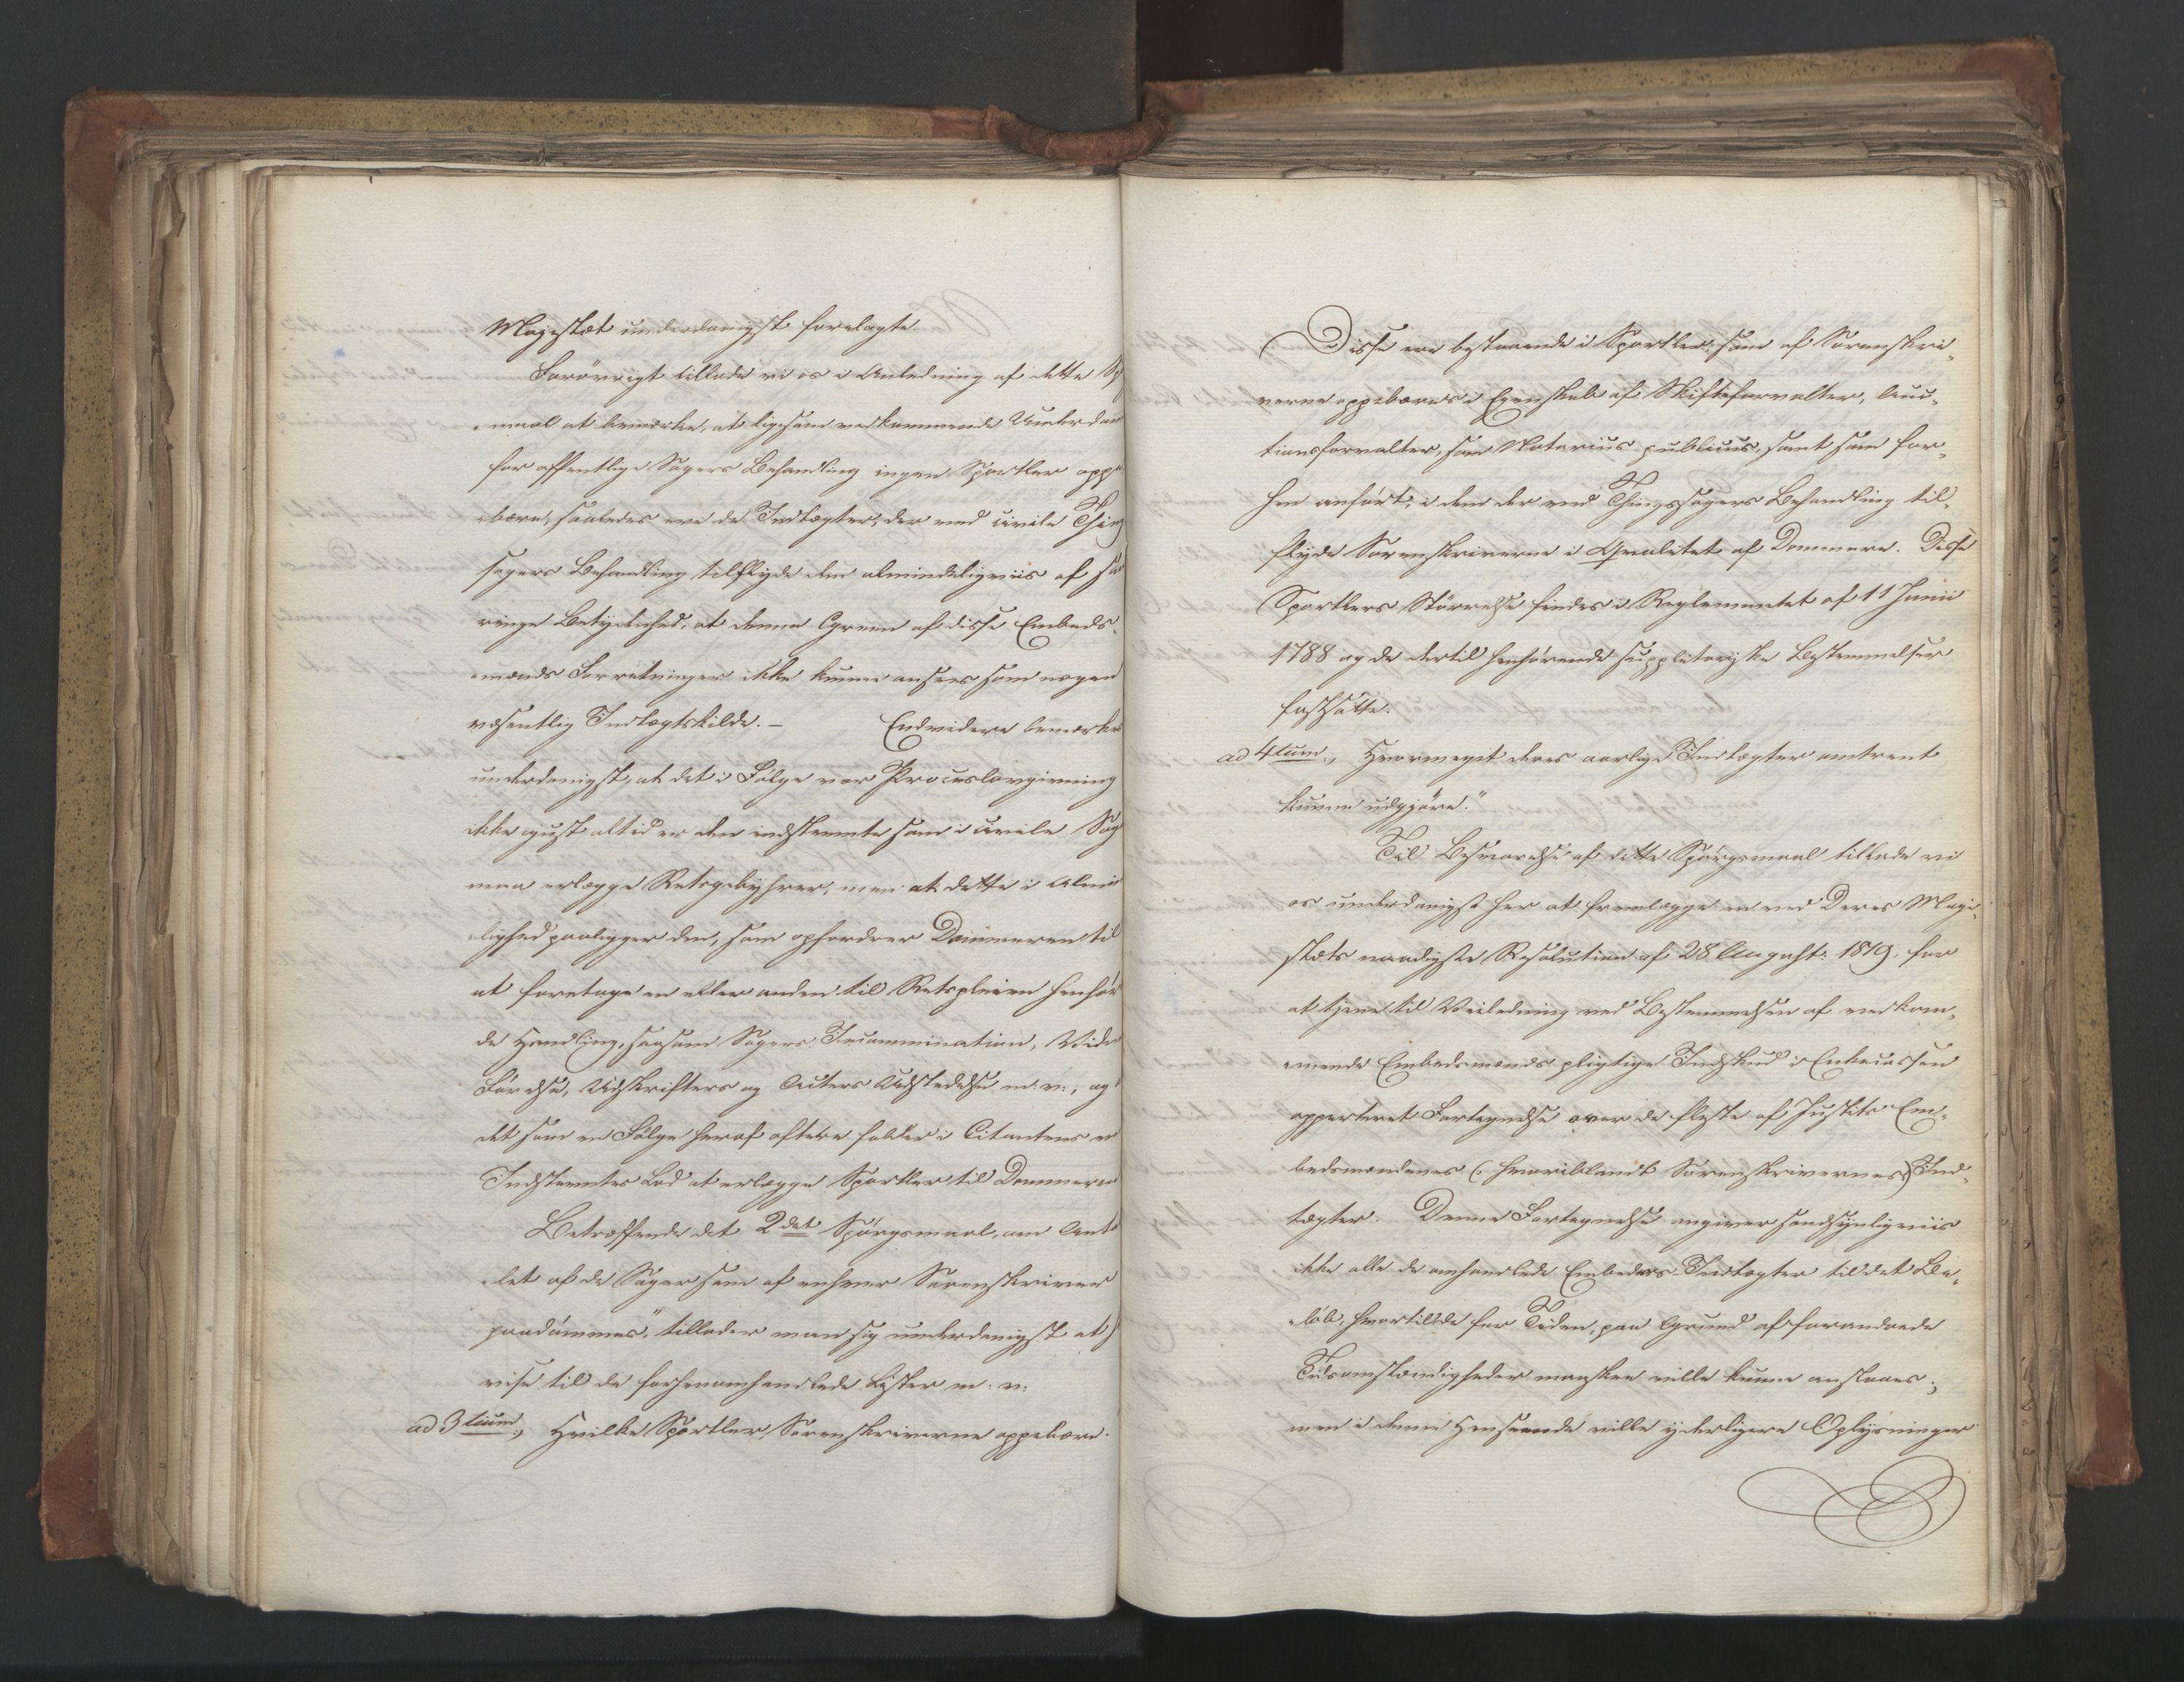 Majestæt underdanigst forelagte.
Forøvrigt tillade vi os i Anledning af dette Sp
maal at bemærke, at ligesom vedkommende Underdom
for offentlige Sagers Behandling ingen Sportler oppe
bære, saaledes ere de Indtægter, der ved civile Thing
sagers Behandling tilflyde dem almindeligviis af saa
ringe Betydenhed, at denne Green af disse Embeds-
mænds Forretninger ikke kunne ansees som nogen
væsentlig Indtægtskilde. — Endvidere bemærkes
underdanigst, at det i Følge vor Proceslovgivning
ikke just altid er den indstevnte som i civile Sag
maa erlægge Retsgebyhrer, men at dette i Almin
delighed paaligger den, som opfordrer Dommeren til
at foretage en eller anden til Retspleien henhør
de Handling, saasom Sagers Incamination, Vidne
Førelse, Udskrifters og Acters Udstedelse m: v:, og
det som en Følge heraf oftere falder i Citantens e
Indstevntes Lod at erlægge Sportler til Dommeren
Betræffende det 2det Spørgsmaal, om Anta
let af de Sager som af enhver Sorenskriver
paadømmes," tillader man sig underdanigst at h
vise til de forhenomhandlede Lister m: v:
ad 3tium, Hvilke Sportler Sorenskriverne oppebære.
Disse ere bestaaende i Sportler, som af Sorenskri-
verne oppebæres i Egenskab af Skifteforvalter, Auc-
tionsforvalter, som Notarius publicus, samt som for-
hen anført, i dem der ved Thingssagers Behandling til-
flyde Sorenskriverne i Qvalitet af Dommere. Disse
Sportlers Størrelse findes i Reglementet af 11 Junii
1788 og de dertil henhørende suppletoriske Bestemmelser
fastsatte.
ad 4tum., Hvormeget deres aarlige Indtægter omtrent
kunne udgjøre."
Til Besvarelse af dette Spørgsmaal tillade vi
os underdanigst her at fremlægge en ved Deres Maje-
stæts naadigste Resolution af 28 August: 1819, for
at tjene til Veiledning ved Bestemmelsen af vedkom-
mende Embedsmænds pligtige Indskud i Enkecassen
opporteret Fortegnelse over de fleste af Justits Em-
bedsmændenes (: hvoriblandt Sorenskrivernes) Ind-
tægter. Denne Fortegnelse angiver sandsynligviis
ikke alle de omhandlede Embeders Indtægter til det Be-
løb, hvortil de for Tiden, paa Grund af forandrede
Tidsomstændigheder maaskee ville kunne anslaaes;
men i denne Henseende ville yderligere Oplysninger